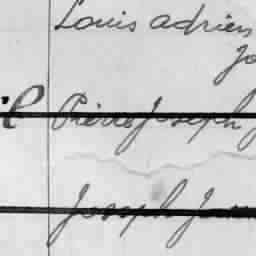 Louis adrien
Jo
Pierre Joseph J
Joseph J